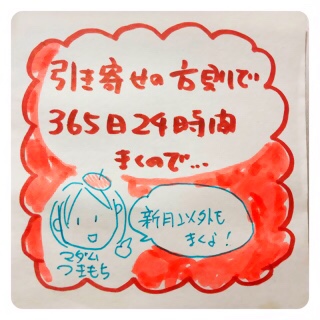 引き寄せの古則で
365日24時間
きくので…
新月以外も
きくよ!
マダム
つきもち